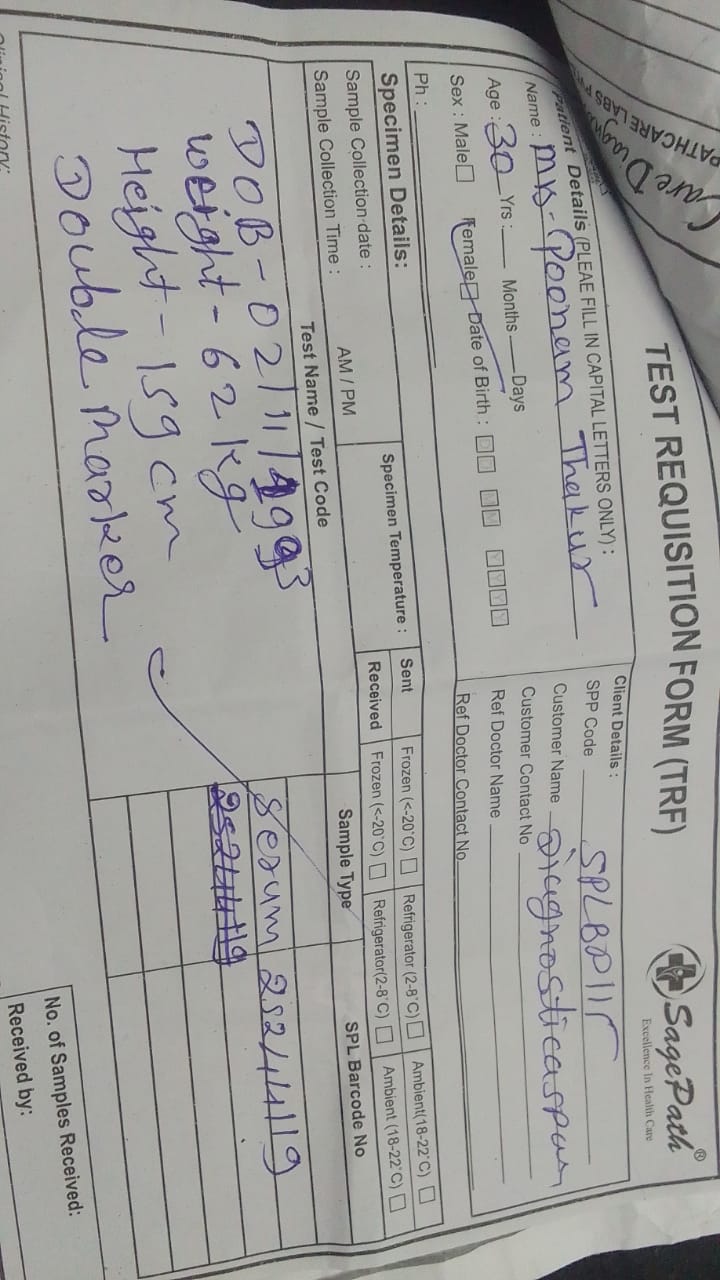 Care Diagnos
PATHCARE LABS PVT
TEST REQUISITION FORM (TRF)
SagePath®
Excellence In Health Care
Patient Details (PLEAE FILL IN CAPITAL LETTERS ONLY) :
Name : Mrs- Poonam Thakur
Age : 30 Yrs : Months Days
Sex : Male Female Date of Birth : D D M M Y Y Y Y
Ph :
Client Details :
SPP Code
Customer Name
Customer Contact No
Ref Doctor Name
Ref Doctor Contact No
Specimen Details:
Sample Collection date :
Sample Collection Time : AM / PM
Specimen Temperature :
Sent Frozen (<-20°C) Refrigerator (2-8°C) Ambient(18-22°C)
Received Frozen (<-20°C) Refrigerator(2-8°C) Ambient (18-22°C)
Test Name / Test Code Sample Type SPL Barcode No
DOB - 02/11/1993
Weight - 62 kg
Height - 159 cm
Double Marker
Serum 25244119
25244119
Clinical History:
No. of Samples Received:
Received by: